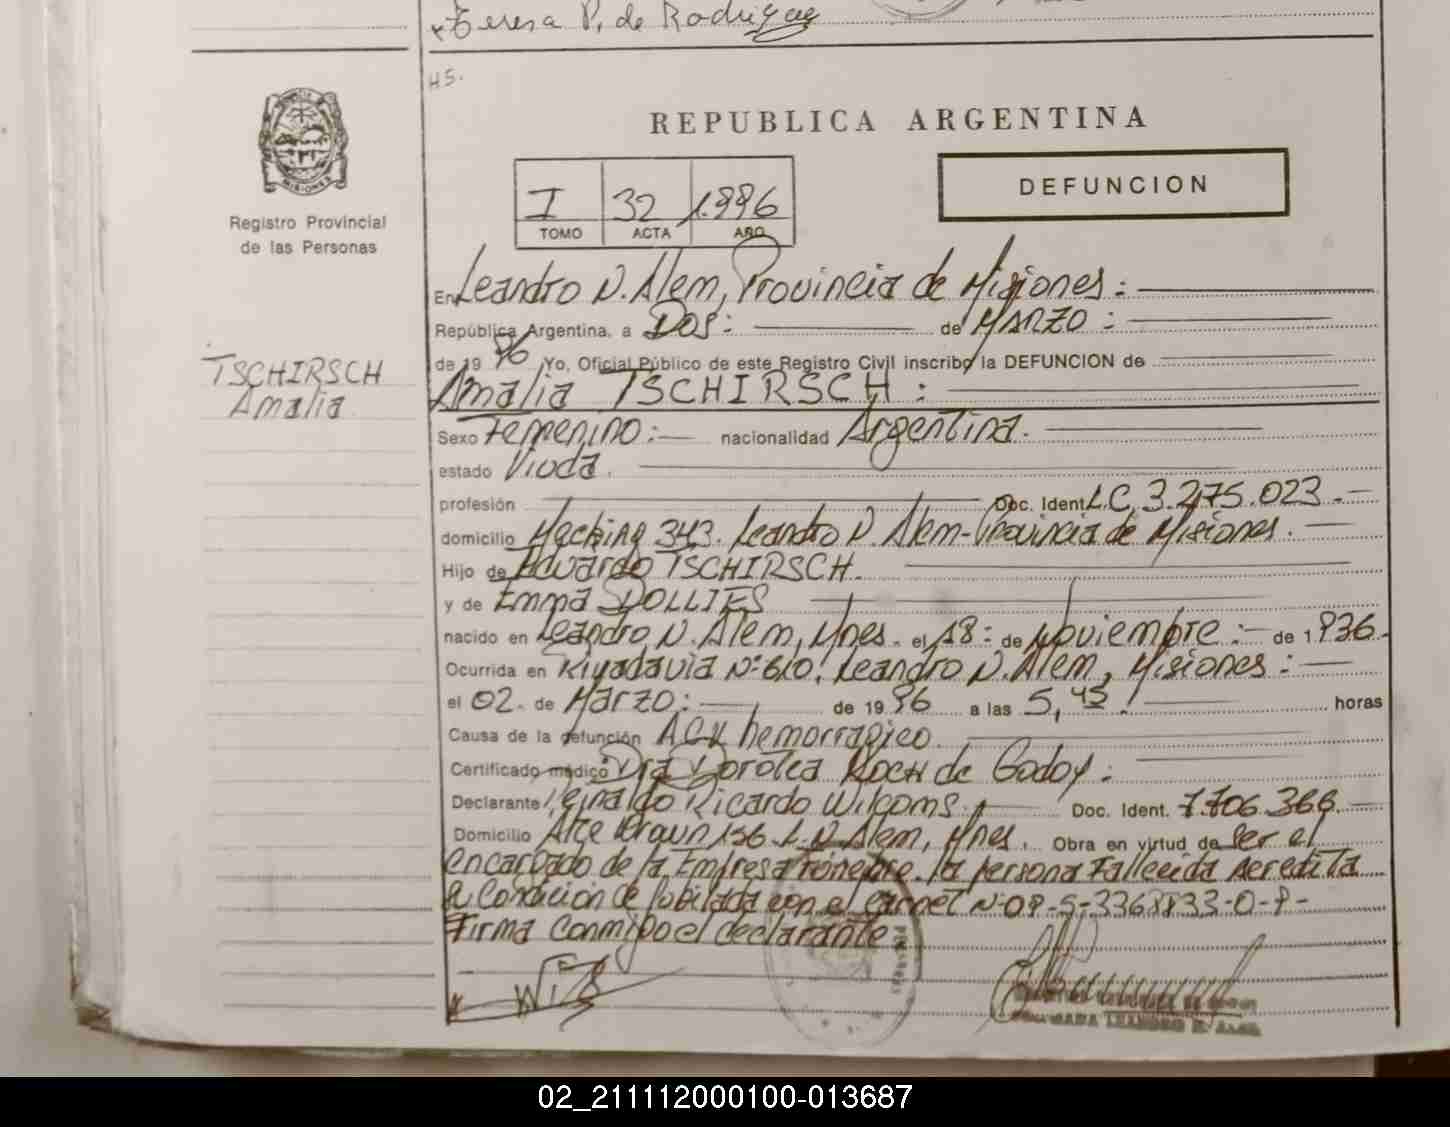 Teresa P. de Rodriguez
H5.
REPUBLICA ARGENTINA
MISIONES
Registro Provincial
de las Personas
I 32 1.996
TOMO ACTA AÑO
DEFUNCION
En Leandro N. Alem, Provincia de Misiones:
República Argentina, a Dos: de MARZO:
de 19 96 Yo, Oficial Público de este Registro Civil inscribo la DEFUNCION de
TSCHIRSCH
Amalia
Amalia TSCHIRSCH:
Sexo Femenino: nacionalidad Argentina.
estado Viuda.
profesión Doc. Ident. L.C. 3.275.023.
domicilio 343. Leandro N. Alem-Provincia de Misiones.
Hijo de Eduardo TSCHIRSCH.
y de Emma DOLLIES
nacido en Leandro N. Alem, Mnes. el 18: de Noviembre: de 1.936.
Ocurrida en Rivadavia Nº 610, Leandro N. Alem, Misiones:
el 02. de Marzo: de 19 96 a las 5,45 horas
Causa de la defunción ACV hemorragico.
Certificado médico Dra Dorotea KOCH de Godoy:
Declarante Reinaldo Ricardo Doc. Ident. 7.706.366.
Domicilio Alte Brown 156. L.N. Alem, Mnes. Obra en virtud de ser el
encargado de la Empresa Funebre. la persona Fallecida acredita
la Condicion de Jubilada con el Carnet
Firma conmigo el declarante
02_211112000100-013687